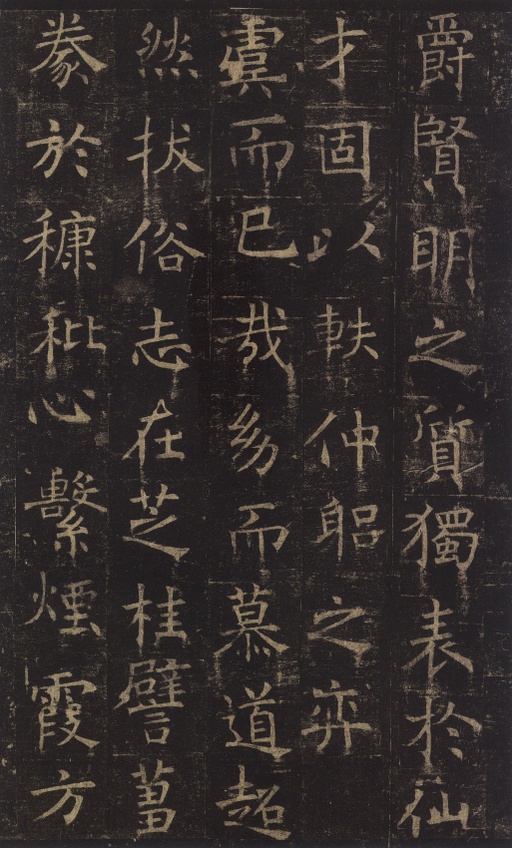 爵賢明之質獨表於仙
才固以軼仲躳之弈
裏而已哉幼而慕道超
然拔俗志在芝桂譬蒭
豢於穅秕心繫煙霞方